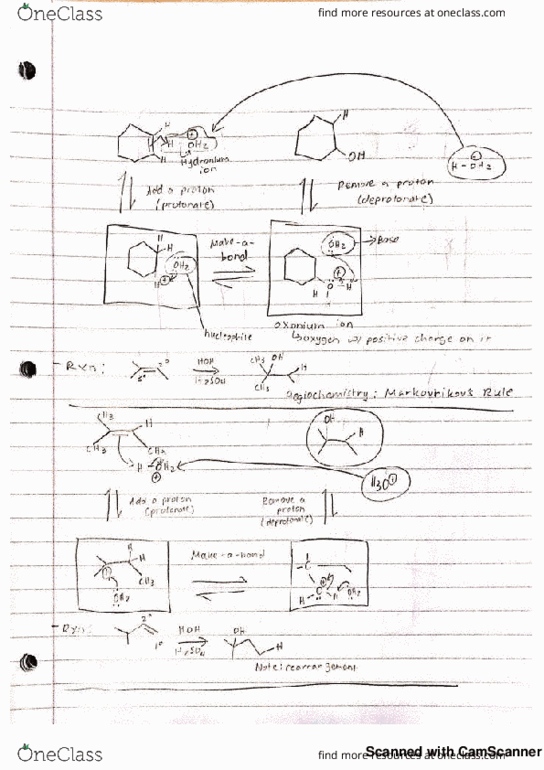 OneClass
find more resources at oneclass.com
H
H OH2
H
Hydronium
ion
H
OH
H-OH2
Add a proton
(protonate)
Remove a proton
(deprotonate)
H
H
OH2
H
Make-a-
bond
OH2
Base
H O H
nucleophile
oxonium ion
oxygen w/ positive charge on it
- Rxn:
2°
3°
HOH
H2SO4
CH3 OH
H
CH3
Regiochemistry: Markovnikov's Rule
CH3
H
CH3
CH3
H-OH2
OH
H
H3O
Add a proton
(protonate)
Remove a
proton
(deprotonate)
H
H
CH3
OH2
Make-a-bond
H
H
OH2
- Rxn:
2°
1°
HOH
H2SO4
OH
H
Note: rearrangement
OneClass
find more resources at oneclass.com
Scanned with CamScanner